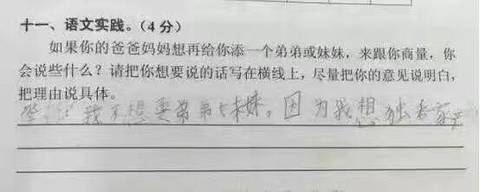 十一、语文实践。(4分)
如果你的爸爸妈妈想再给你添一个弟弟或妹妹，来跟你商量，你
会说些什么？请把你想要说的话写在横线上，尽量把你的意见说明白，
把理由说具体。
答：我不想要弟弟妹妹，因为我想独吞家产